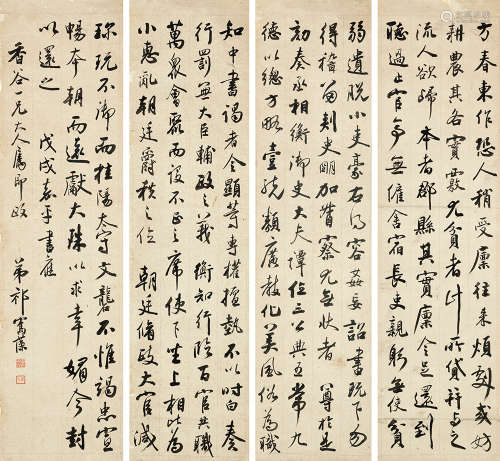 方春東作恐人稍受稟往來煩劇或妨
耕農其各實覈尤貧者計所貸并與之
流人欲歸本者郡縣其實稟令足還到
聽過止官亭無僱舍宿長吏親躬無使貧
弱遺脫小吏豪右得容姦妄詔書既下勿
得稽留刺史明加督察尤無狀者 尊於是
劾奏丞相衡御史大夫譚位三公典五常九
德以總方略壹統類廣教化美風俗為職
知中書謁者令顯等專權擅執不以時白奏
行罰無大臣輔政之義 衡知行臨百官共職
萬眾會聚而設不正之席使下坐上相比為
小惠亂朝廷爵秩之位 朝廷脩政大官減
珍玩不御而桂陽太守文礱不惟竭忠宣
暢本朝而遠獻大珠以求幸媚今封
以還之 戊戌嘉平書應
香谷一兄大人屬即政
弟祁寯藻